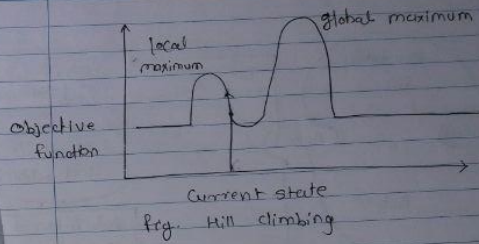 global maximum
local
maximum
Objective
function
Current state
fig. Hill climbing